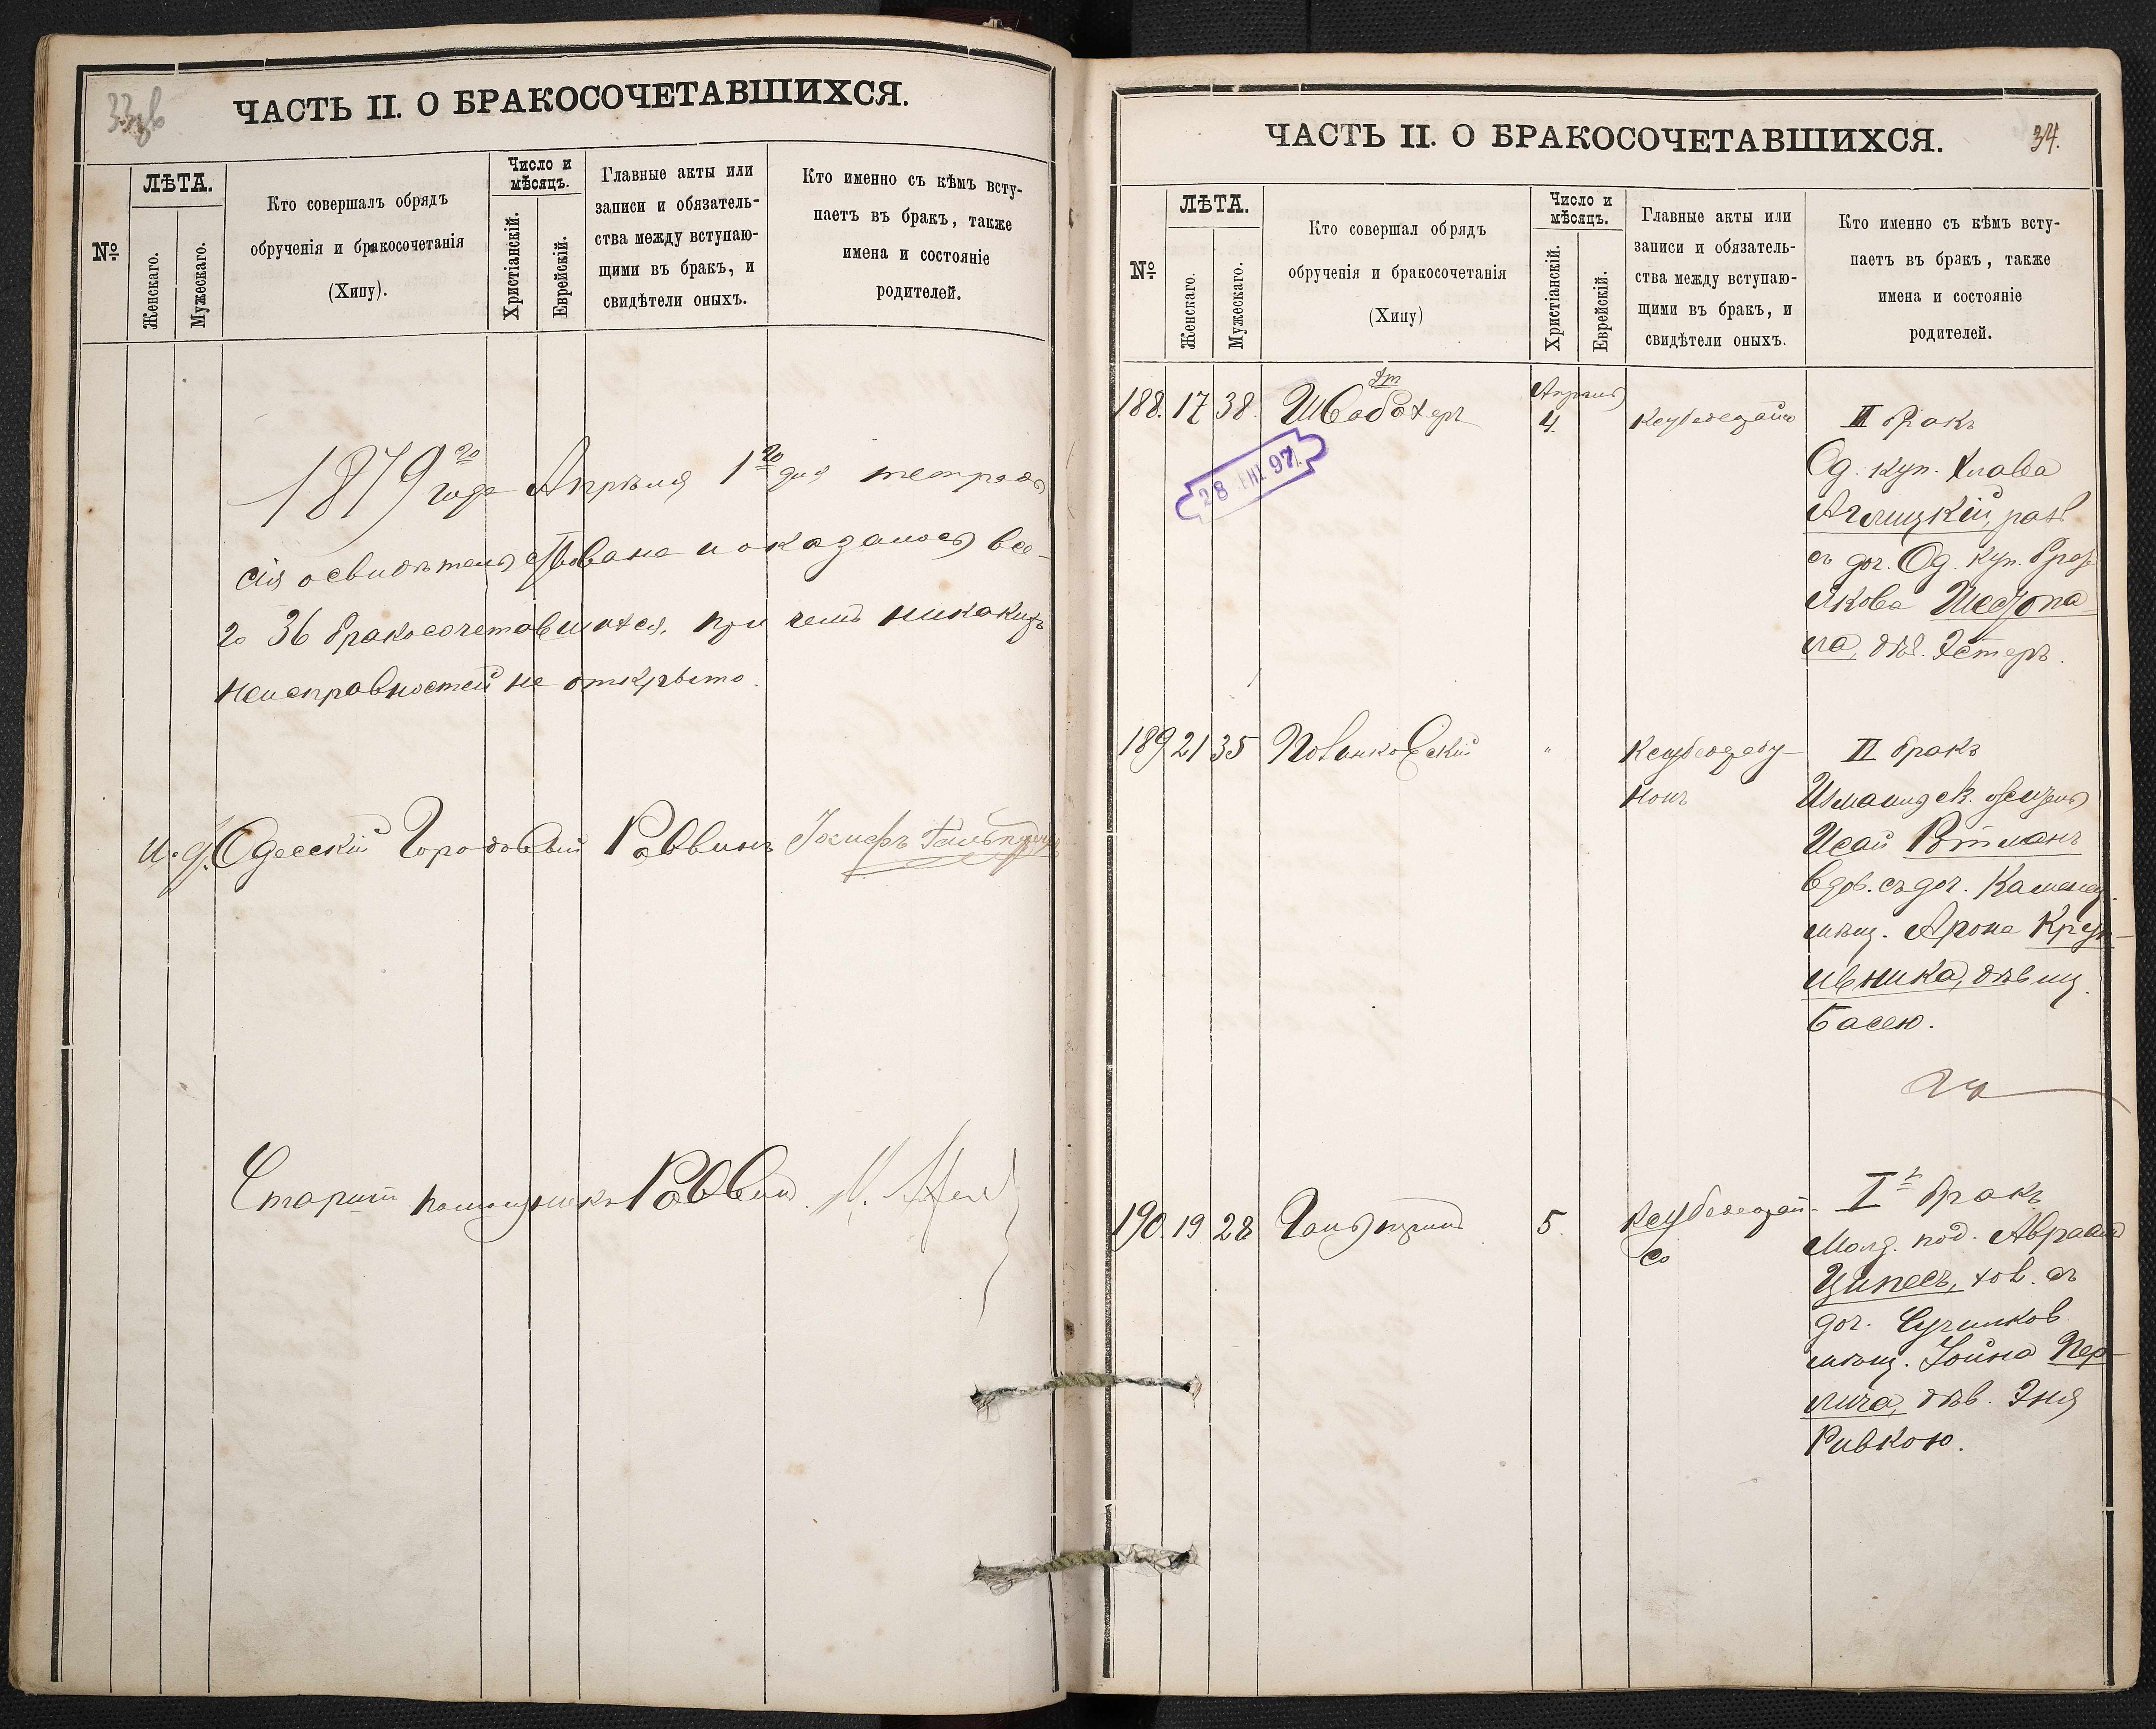 33 об
ЧАСТЬ II. О БРАКОСОЧЕТАВШИХСЯ.
№
ЛѢТА.
Женскаго.
Мужескаго.
Кто совершалъ обрядъ
обрученія и бракосочетанія
(Хипу).
Число и
мѣсяцъ.
Христіанскій.
Еврейскій.
Главные акты или
записи и обязатель-
ства между вступаю-
щими въ бракъ, и
свидѣтели оныхъ.
Кто именно съ кѣмъ всту-
паетъ въ бракъ, также
имена и состояніе
родителей.
1879го года Апрѣля 1го дня тетрадь
сія освидѣтельствована и оказалось все-
го 36 бракосочетавшихся, при чемъ никакихъ
неисправностей не открыто.
И. д. Одесскій Городовый Раввинъ Іосифъ Гальперинъ
Старшій помощникъ Раввина
ЧАСТЬ II. О БРАКОСОЧЕТАВШИХСЯ.
34.
№
ЛѢТА.
Женскаго.
Мужескаго.
Кто совершал обрядъ
обрученія и бракосочетанія
(Хипу)
Число и
мѣсяцъ.
Христіанскій.
Еврейскій.
Главные акты или
записи и обязатель-
ства между вступаю-
щими въ бракъ, и
свидѣтели оныхъ.
Кто именно съ кѣмъ всту-
паетъ въ бракъ, также
имена и состояніе
родителей.
188. 17 38. Швабахеръ
Апрѣль
4.
28 ЯНВ 97.
II бракъ
Од. куп.
разв.
съ доч. Од. куп.
дѣв. Эстеръ.
189 21 35 "
II бракъ
Исай Ротманъ
вдов. съ доч. Каменец.
мѣщ. Арона Круп-
ивника, дѣвиц.
Басею.
190. 19 28 5.
Iй бракъ
Молд. под. Авраамъ
Ципесъ, хол. съ
доч.
мѣщ. Іойна Пер-
лича, дѣв. Эня
Ривкою.